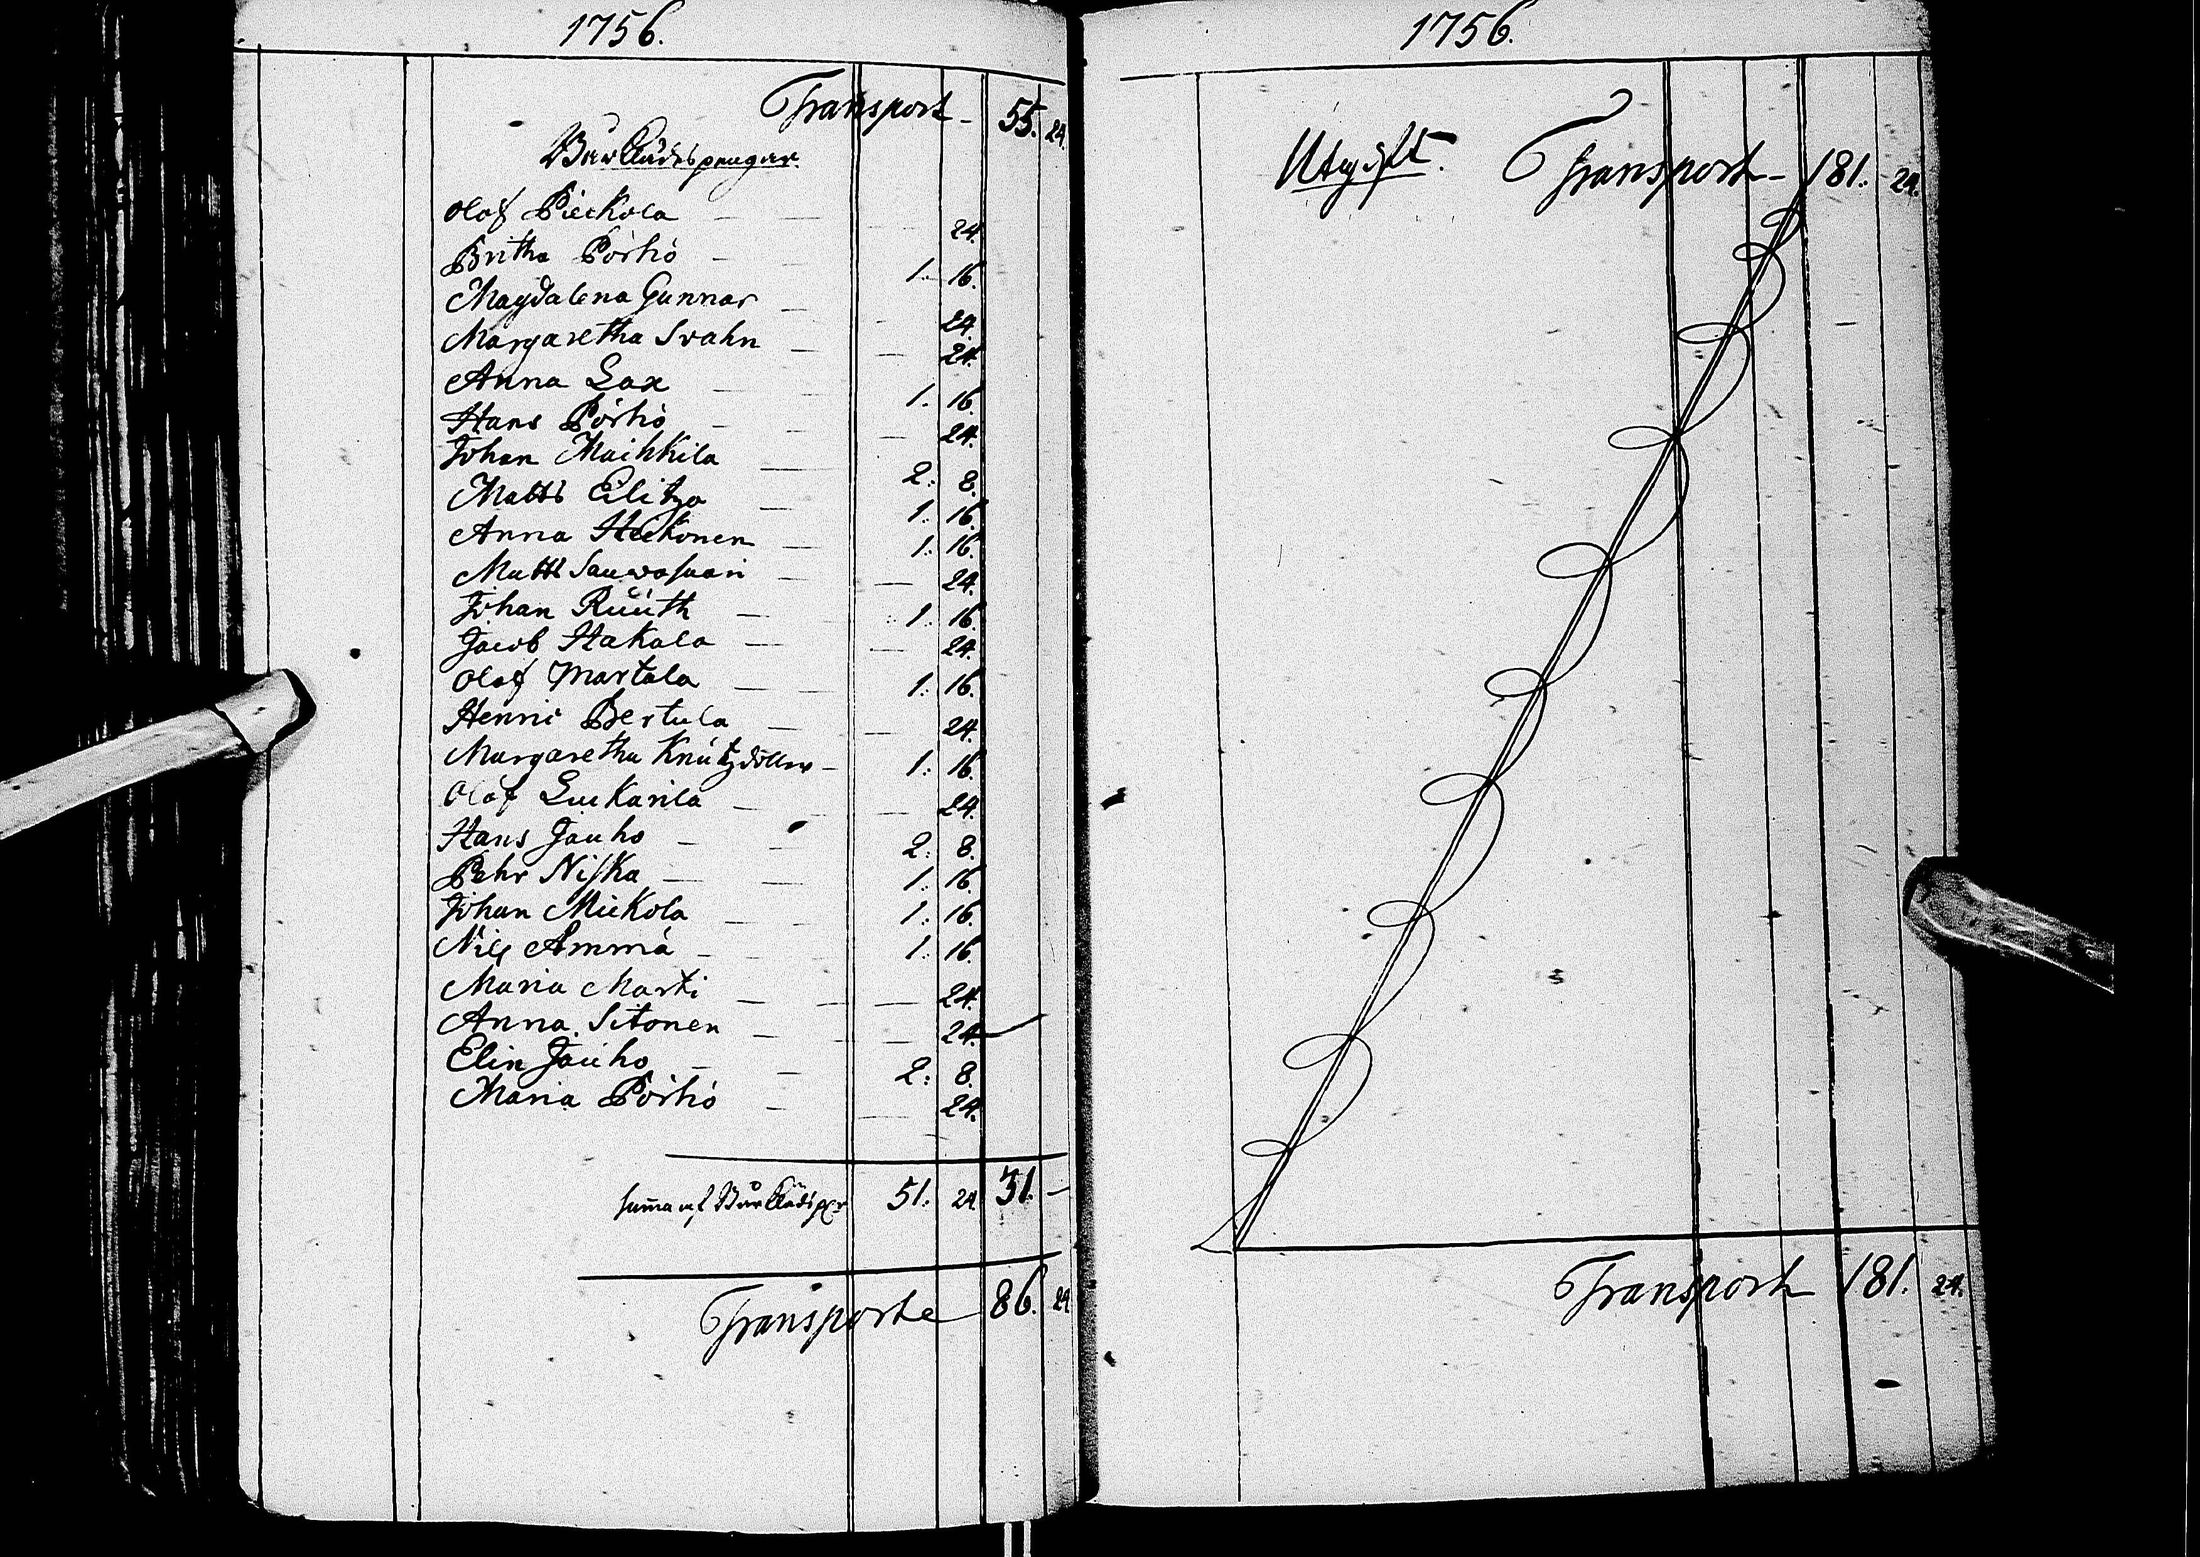 1756.
Transport - 55. 24.
Bårklädespengar
Olof Pieckola — — 24.
Britha Pörhö — 1. 16.
Magdalena Gunnar — 24.
Margaretha Svahn — 24.
Anna Lax — 1. 16.
Hans Pörhö — 24.
Johan Maihkila — 2. 8.
Matts Eilitzo — 1. 16.
Anna Heckonen — 1. 16.
Matts Sauwosuari — 24.
Johan Rüüth — 1. 16.
Jacob Hakala — 24.
Olof Martala — 1. 16.
Henric Bertula — 24.
Margaretha Knutzdotter — 1. 16.
Olof Luckarila — 24.
Hans Jauho — 2. 8.
Pehr Niska — 1. 16.
Johan Mickola — 1. 16.
Nils Ämmä — 1. 16.
Maria Marti — 24.
Anna Sitonen — 24.
Elin Jauho — 2. 8.
Maria Pörhö — 24.
Summa af Bårklädsp:r 51. 24 31. —
Transporte 86. 24
1756.
Utgift. Transport - 181. 24.
Transport 181. 24.